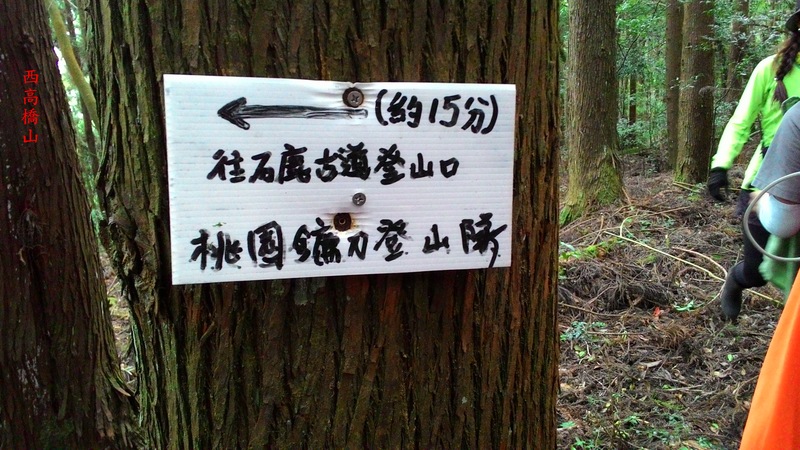 西高橋山
(約15分)
往石鹿古道登山口
桃園鐮刀登山隊